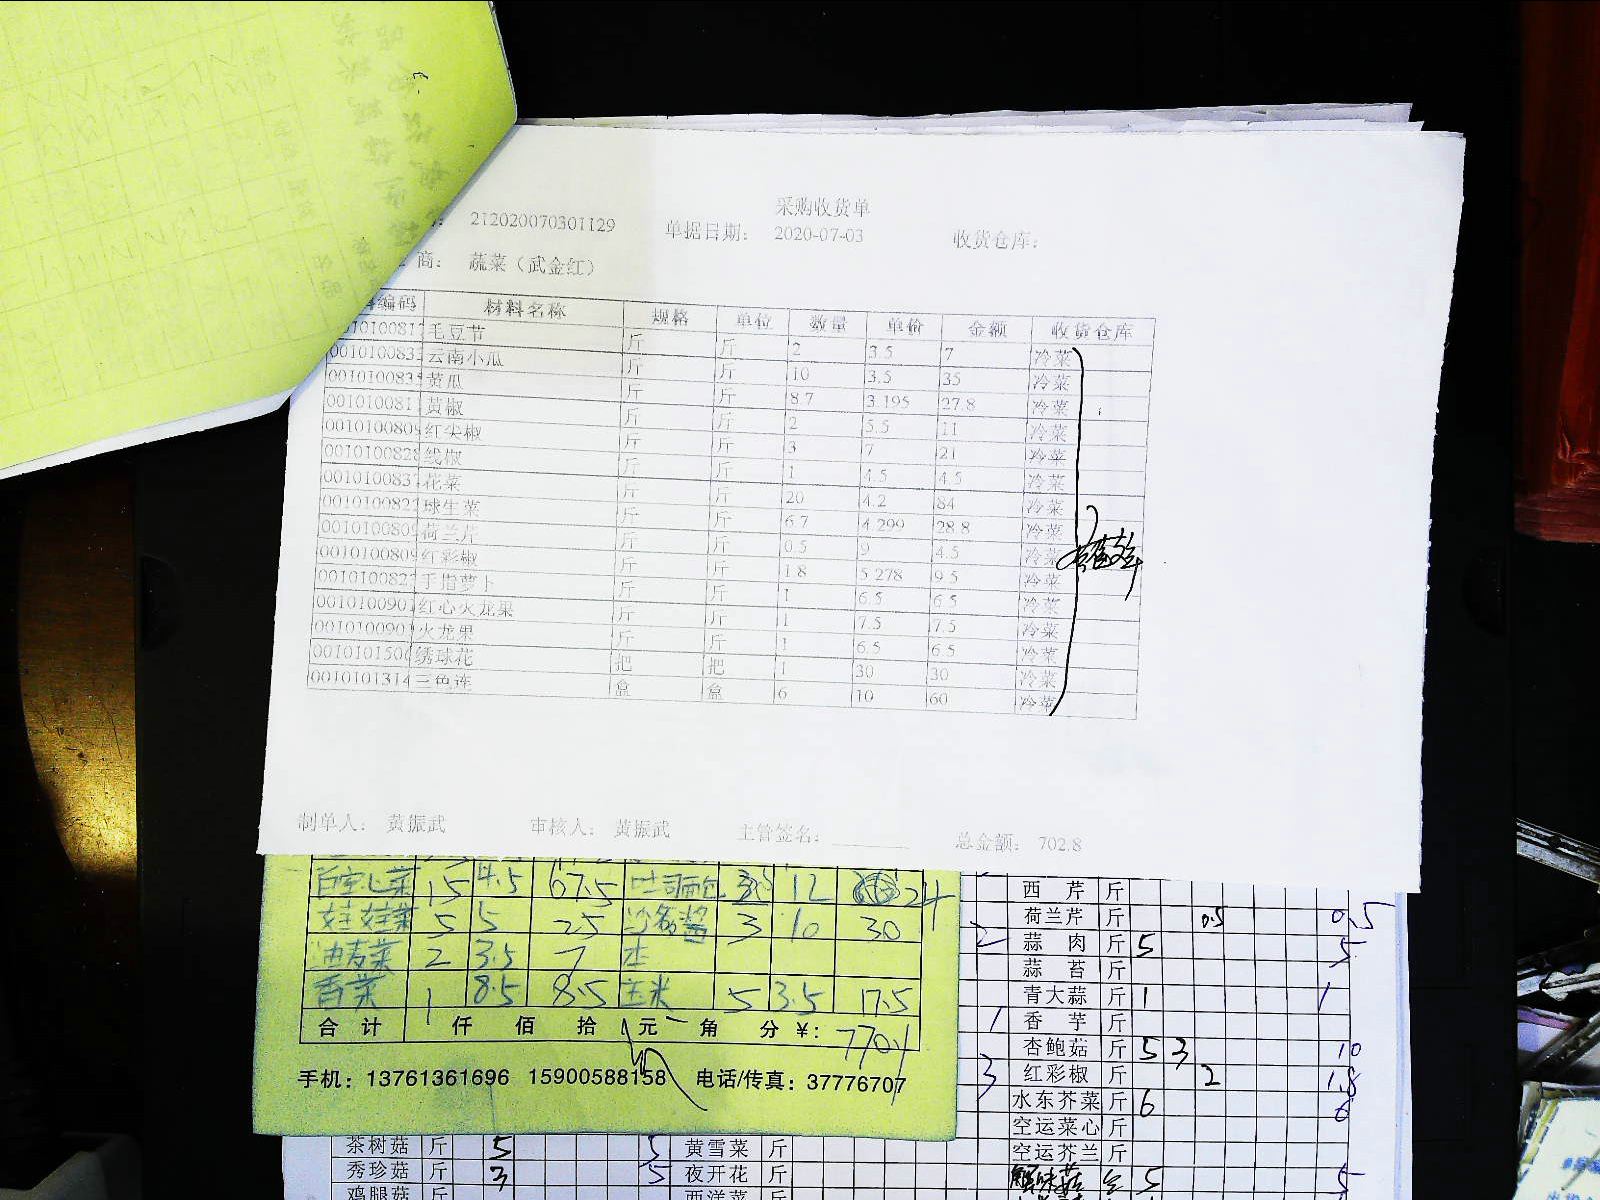 采购收货单
212020070301129 单据日期: 2020-07-03 收货仓库:
商: 蔬菜（武金红）
编码 材料名称 规格 单位 数量 单价 金额 收货仓库
毛豆节 斤 斤 2 3.5 7 冷菜
云南小瓜 斤 斤 10 3.5 35 冷菜
黄瓜 斤 斤 8.7 3.195 27.8 冷菜
黄椒 斤 斤 2 5.5 11 冷菜
红尖椒 斤 斤 3 7 21 冷菜
线椒 斤 斤 1 4.5 4.5 冷菜
花菜 斤 斤 20 4.2 84 冷菜
球生菜 斤 斤 6.7 4.299 28.8 冷菜
荷兰芹 斤 斤 0.5 9 4.5 冷菜
红彩椒 斤 斤 1.8 5.278 9.5 冷菜
手指萝卜 斤 斤 1 6.5 6.5 冷菜
红心火龙果 斤 斤 1 7.5 7.5 冷菜
火龙果 斤 斤 1 6.5 6.5 冷菜
绣球花 把 把 1 30 30 冷菜
0010101314 三色连 盒 盒 6 10 60 冷菜
制单人: 黄振武 审核人: 黄振武 主管签名: 总金额: 702.8
15 4.5 67.5 12 24
娃娃菜 5 5 25 3 10 30
油麦菜 2 3.5 7
香菜 1 8.5 8.5 玉米 5 3.5 17.5
合计 仟 佰 拾 元 角 分 ¥:
手机: 13761361696 15900588158 电话/传真: 37776707
西芹 斤
荷兰芹 斤 0.5 0.5
蒜肉 斤 5 5
蒜苔 斤
青大蒜 斤 1 1
香芋 斤
杏鲍菇 斤 5 3 10
红彩椒 斤 2 1.8
水东芥菜 斤 6 6
空运菜心 斤
空运芥兰 斤
5 5
茶树菇 斤 5 5 黄雪菜 斤
秀珍菇 斤 3 5 夜开花 斤
鸡腿菇 斤 西洋菜 斤